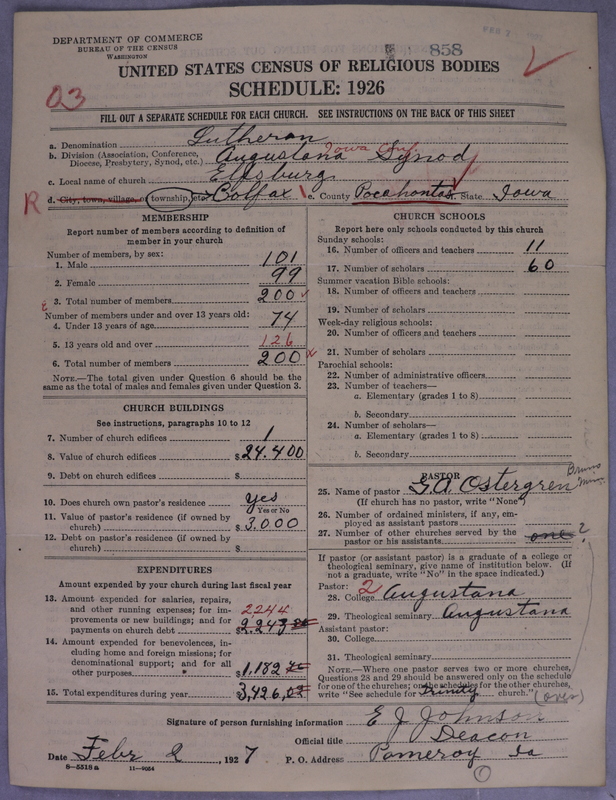 DEPARTMENT OF COMMERCE
BUREAU OF THE CENSUS
WASHINGTON
FEB 2
858
UNITED STATES CENSUS OF RELIGIOUS BODIES
SCHEDULE: 1926
03
FILL OUT A SEPARATE SCHEDULE FOR EACH CHURCH. SEE INSTRUCTIONS ON THE BACK OF THIS SHEET
a. Denomination Lutheran
b. Division (Association, Conference, Diocese, Presbytery, Synod, etc.) Augustana Synod Iowa Conf.
c. Local name of church Elfsburg
R d. City, town, village, or township, etc. Colfax e. County Pocahontas State Iowa
MEMBERSHIP
Report number of members according to definition of
member in your church
Number of members, by sex:
1. Male 101
2. Female 99
3. Total number of members 200
Number of members under and over 13 years old:
4. Under 13 years of age 74
5. 13 years old and over 126
6. Total number of members 200
NOTE.—The total given under Question 6 should be the
same as the total of males and females given under Question 3.
CHURCH BUILDINGS
See instructions, paragraphs 10 to 12
7. Number of church edifices 1
8. Value of church edifices $24,400
9. Debt on church edifices $
10. Does church own pastor's residence yes
Yes or No
11. Value of pastor's residence (if owned by
church) $3,000
12. Debt on pastor's residence (if owned by
church) $
EXPENDITURES
Amount expended by your church during last fiscal year
13. Amount expended for salaries, repairs,
and other running expenses; for im- 2244
provements or new buildings; and for
payments on church debt $2,243
14. Amount expended for benevolences, in-
cluding home and foreign missions; for
denominational support; and for all
other purposes $1,182
15. Total expenditures during year 3,426
CHURCH SCHOOLS
Report here only schools conducted by this church
Sunday schools:
16. Number of officers and teachers 11
17. Number of scholars 60
Summer vacation Bible schools:
18. Number of officers and teachers
19. Number of scholars
Week-day religious schools:
20. Number of officers and teachers
21. Number of scholars
Parochial schools:
22. Number of administrative officers
23. Number of teachers—
a. Elementary (grades 1 to 8)
b. Secondary
24. Number of scholars—
a. Elementary (grades 1 to 8)
b. Secondary
PASTOR
25. Name of pastor G. A. Ostergren Bruno Minn.
(If church has no pastor, write "None")
26. Number of ordained ministers, if any, em-
ployed as assistant pastors
27. Number of other churches served by the
pastor or his assistants one ?
If pastor (or assistant pastor) is a graduate of a college or
theological seminary, give name of institution below. (If
not a graduate, write "No" in the space indicated.)
Pastor: 2
28. College Augustana
29. Theological seminary Augustana
Assistant pastor:
30. College
31. Theological seminary
NOTE.—Where one pastor serves two or more churches,
Questions 28 and 29 should be answered only on the schedule
for one of the churches; on the schedule for the other churches,
write "See schedule for Trinity church." (over)
Signature of person furnishing information E J Johnson
Official title Deacon
Date Febr 2, 1927 P. O. Address Pomeroy Ia
8—5518a 11—9054